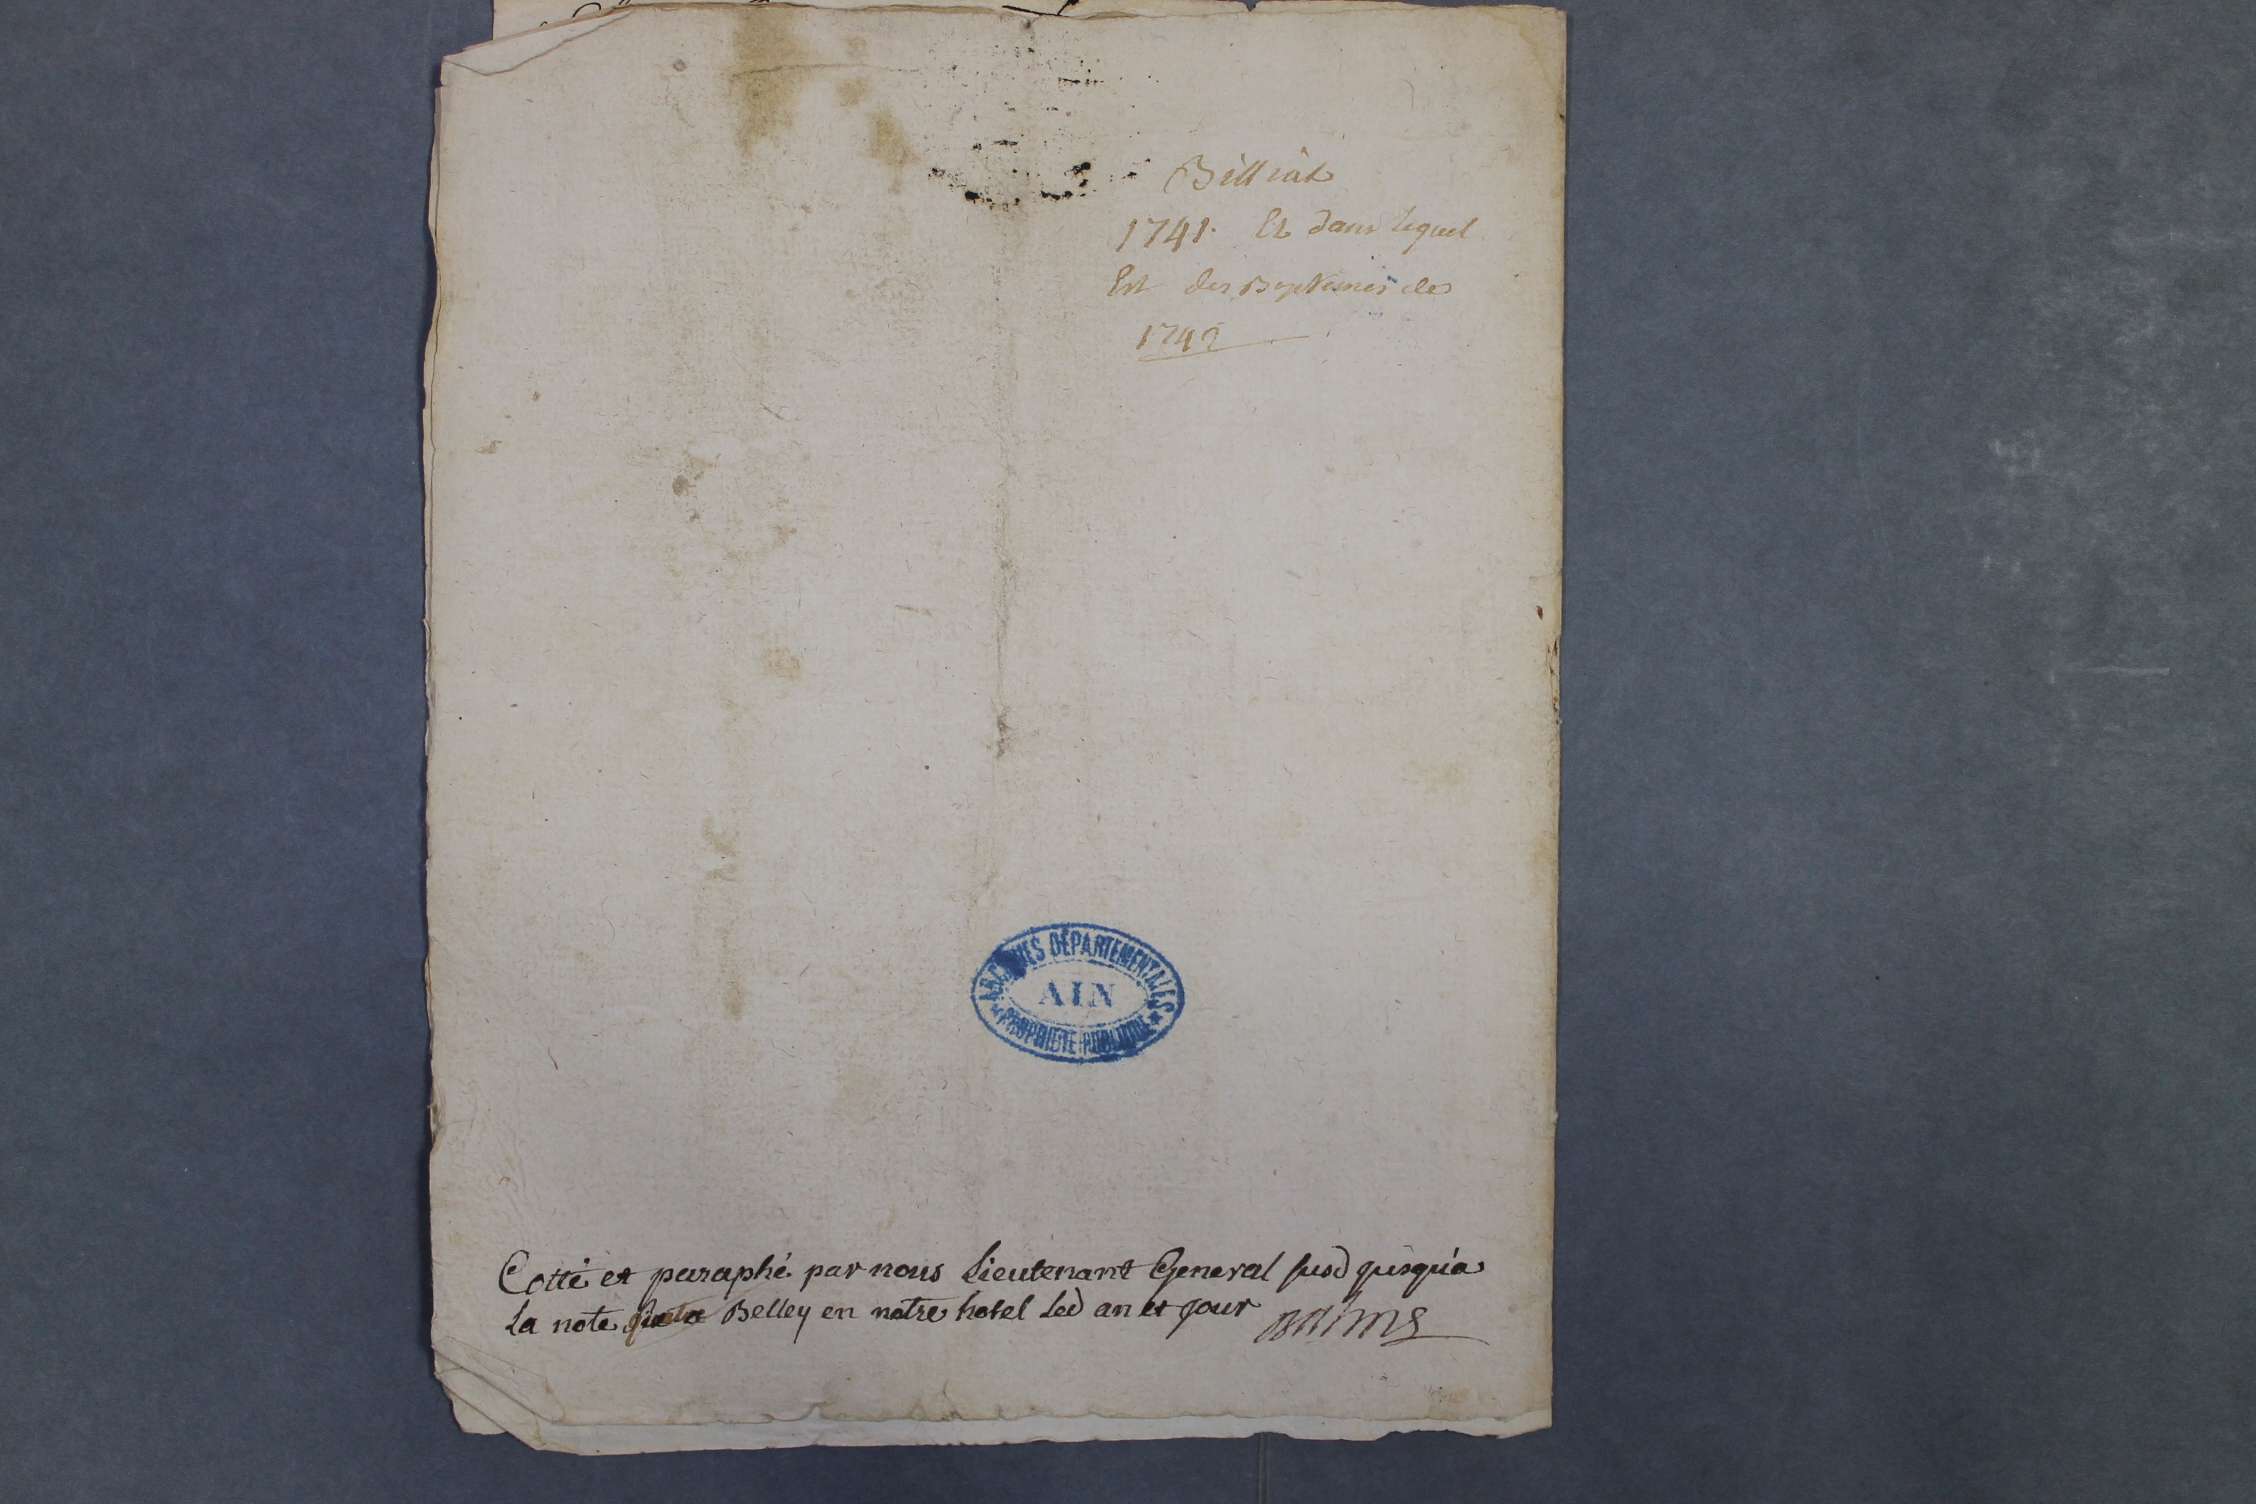 Billiat
1741. Et dans lequel
Est des Baptemes de
1742
ARCHIVES DÉPARTEMENTALES
AIN
PROPRIÉTÉ PUBLIQUE
Cotté et paraphé par nous Lieutenant General susd jusqu'a
La note Belley en notre hotel led an et jour